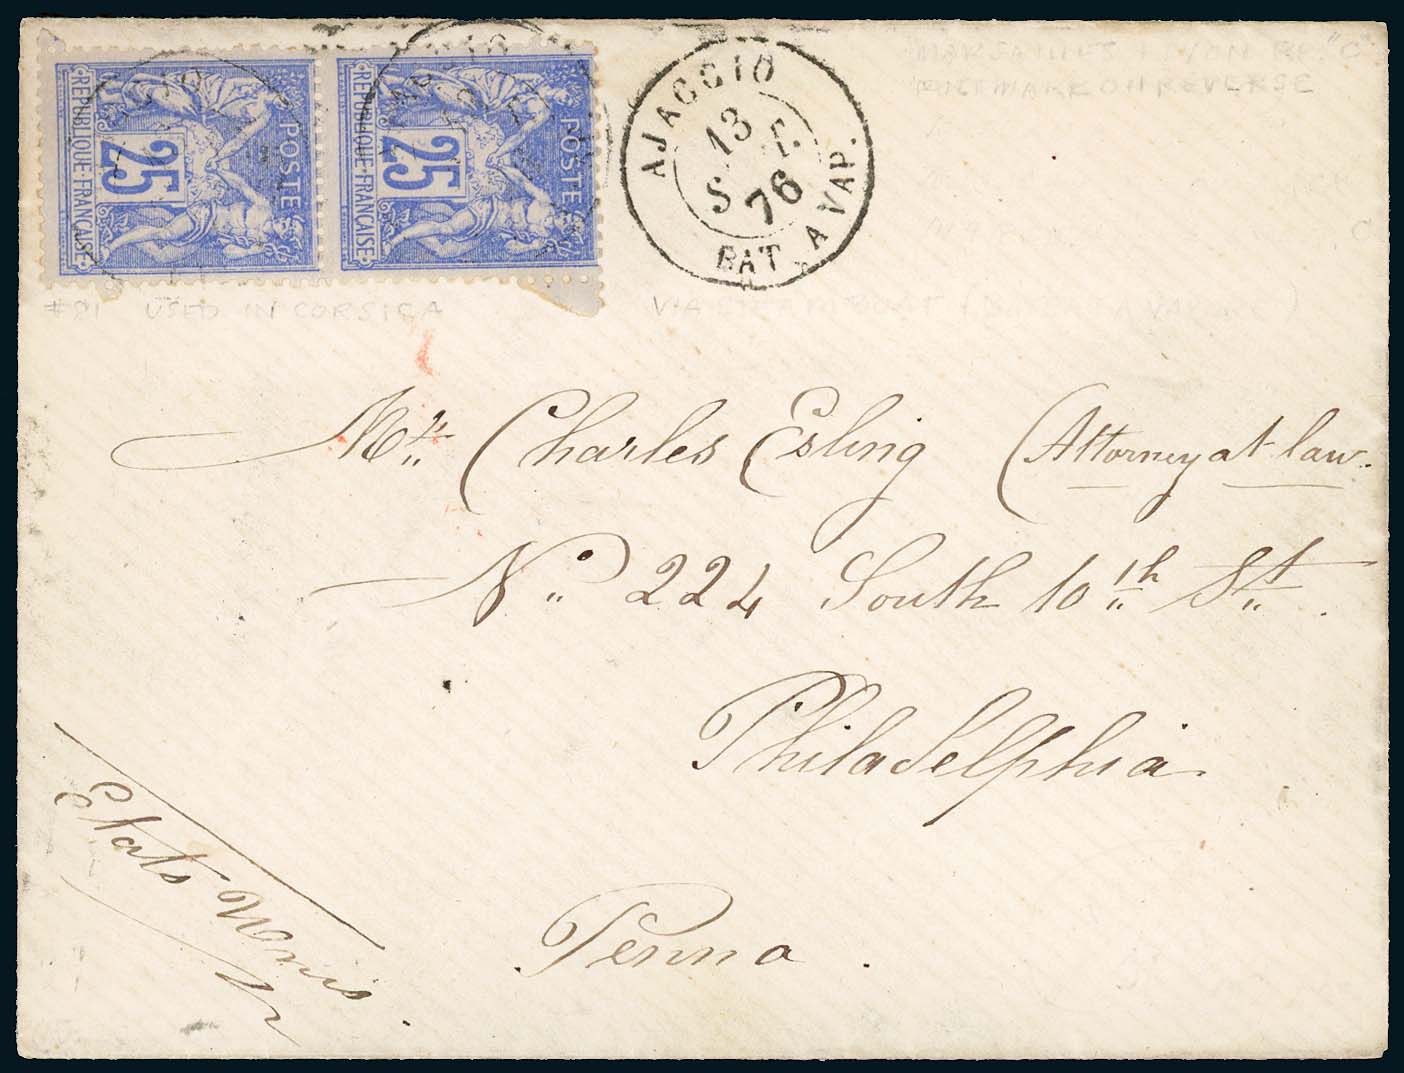 POSTE
25
RÉPUBLIQUE·FRANÇAISE
POSTE
25
RÉPUBLIQUE·FRANÇAISE
AJACCIO
13
S E.
76
BAT A VAP.
ON REVERSE
#81 USED IN CORSICA
VIA STEAMBOAT
Mr. Charles Esling (Attorney at law.
No. 224 South 10th St.
Philadelphia
Penna.
Etats Unis.